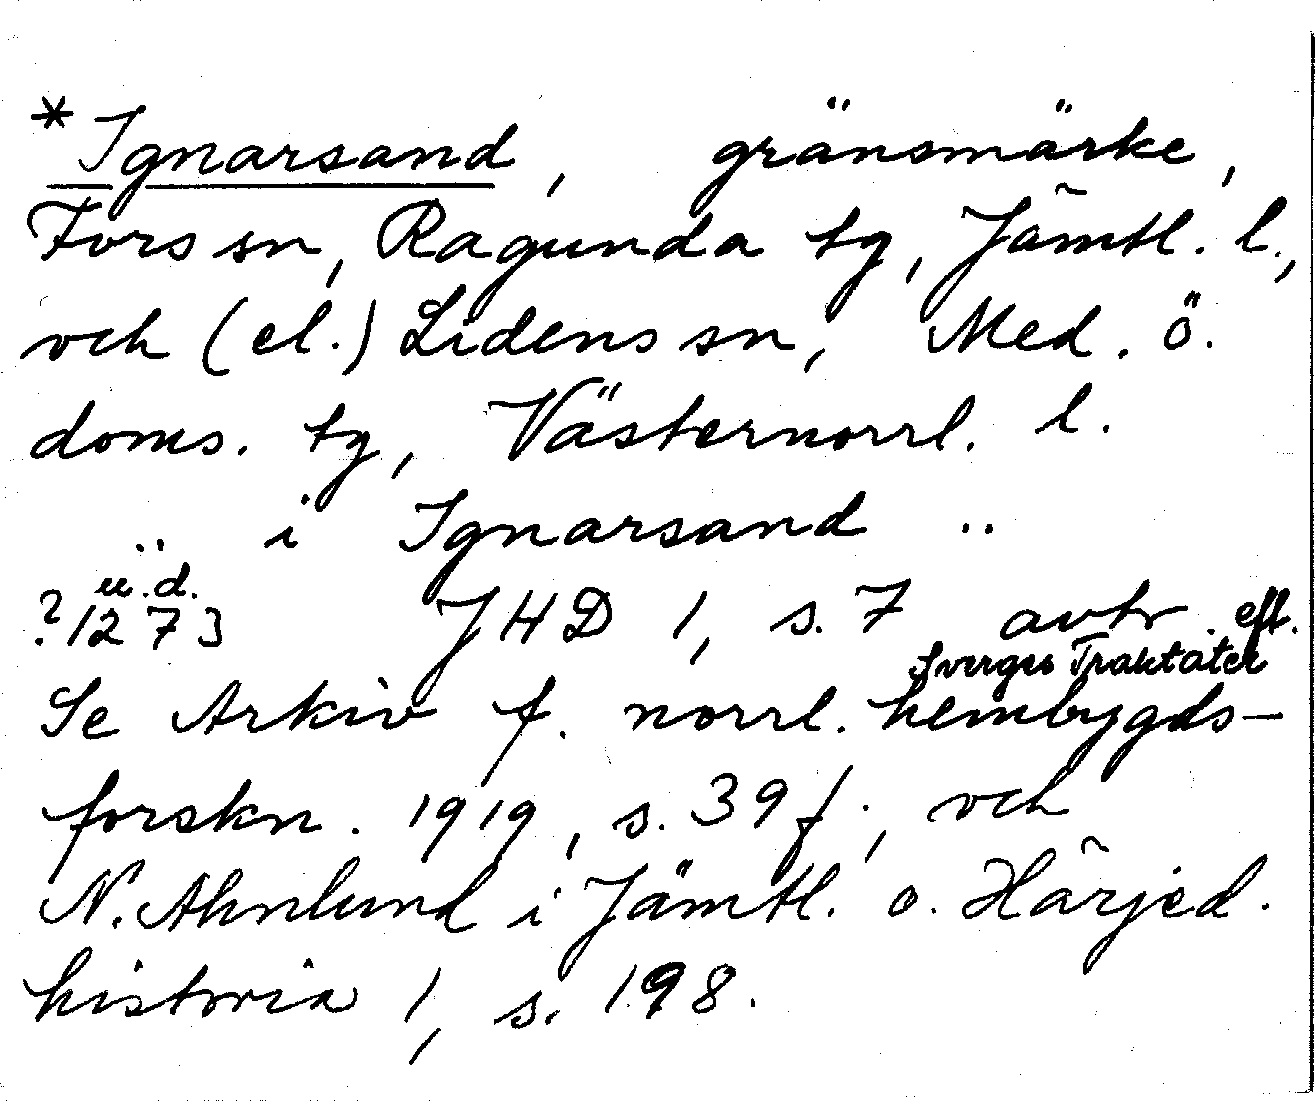 *Ignarsand, gränsmärke,
Fors sn, Ragunda tg, Jämtl. l.,
och (el.) Lidens sn, Med. ö.
doms. tg, Västernorrl. l.
.. i Ignarsand ..
u.d.
?1273 JHD 1, s. 7 avtr. eft.
Sverges Traktater
Se Arkiv f. norrl. hembygds-
forskn. 1919, s. 39 f., och
N. Ahnlund i Jämtl. o. Härjed.
historia 1, s. 198.